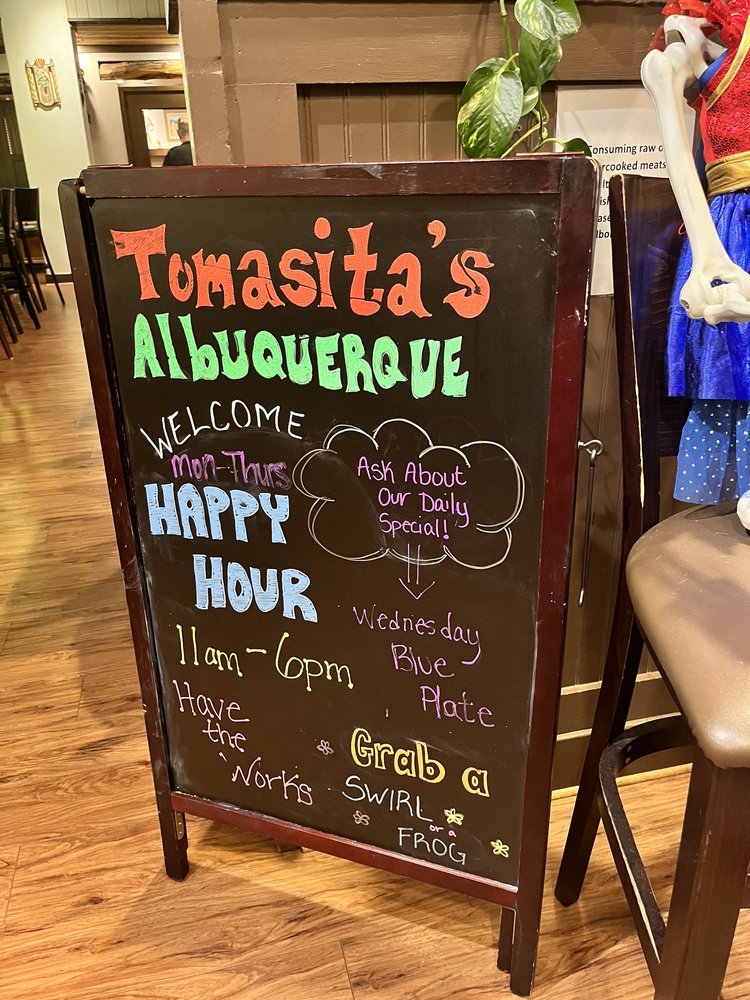 Tomasita's
Albuquerque
WELCOME
Mon-Thurs
HAPPY
HOUR
11am-6pm
Have
the
Works
Ask About
Our Daily
Special!
Wednesday
Blue
Plate
Grab a
SWIRL
or a
FROG
Consuming raw o
ercooked meats